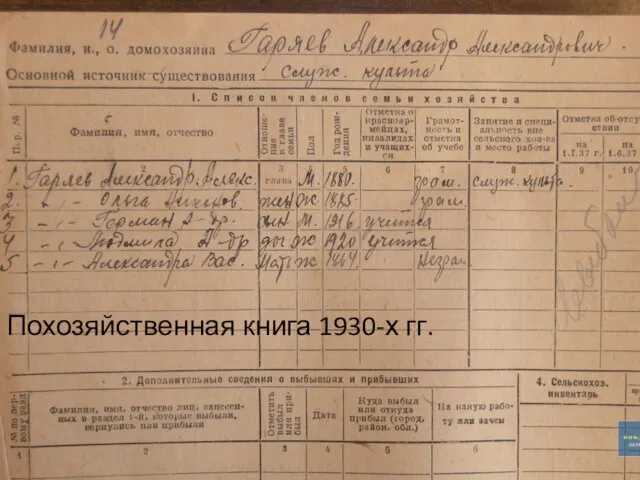 14
Фамилия, и., о. домохозяина Гаряев Александр Александрович.
Основной источник существования служ. культа
1. Список членов семьи хозяйства
Пор. № Фамилия, имя, отчество Отношение к главе семьи Пол Год рождения Отметка о красноармейцах, инвалидах и учащихся Грамотность и отметка об учебе Занятие и специальность вне сельского хоз-ва и место работы Отметка об отсутствии
на 1.I.37 г. на 1.6.37
2 3 6 7 8 9 10
1. Гаряев Александр Алекс. глава М. 1880. грам. служ. культа
2. -"- Ольга жен ж 1885. грам.
3 -"- Герман А-др. М. 1916 учится
4 -"- Людмила А-др доч ж 1920 учится
5 -"- Александра Вас. мать ж 1864. неграм.
Похозяйственная книга 1930-х гг.
2. Дополнительные сведения о выбывших и прибывших
4. Сельскохоз. инвентарь
№ по первому разд. Фамилия, имя, отчество лиц, занесенных в раздел 1-й, которые выбыли, вернулись или прибыли Отметить выбыл или прибыл Дата Куда выбыл или откуда прибыл (город, район, обл.) На какую работу или зачем
1 2 3 4 5 6
www.